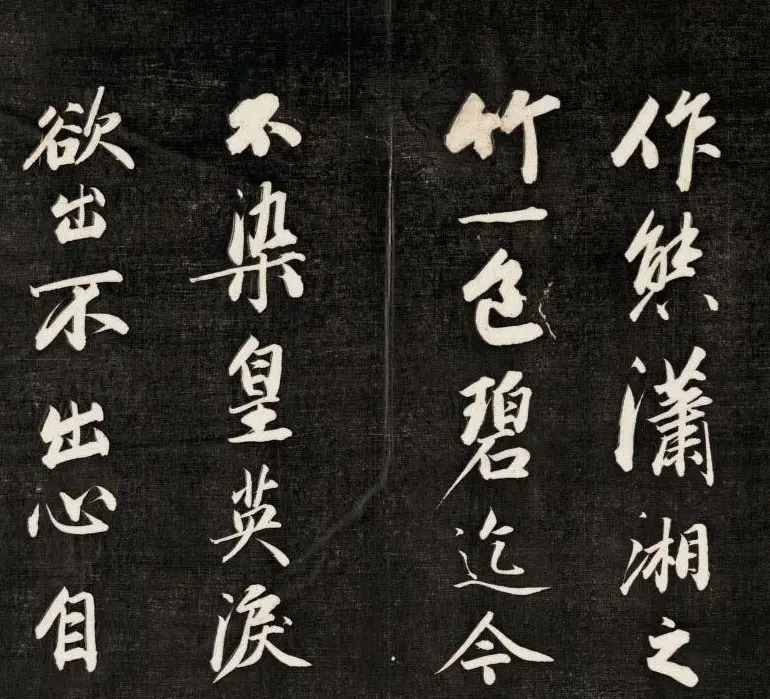 作態瀟湘之
竹一色碧迄今
不染皇英淚
欲出不出心自